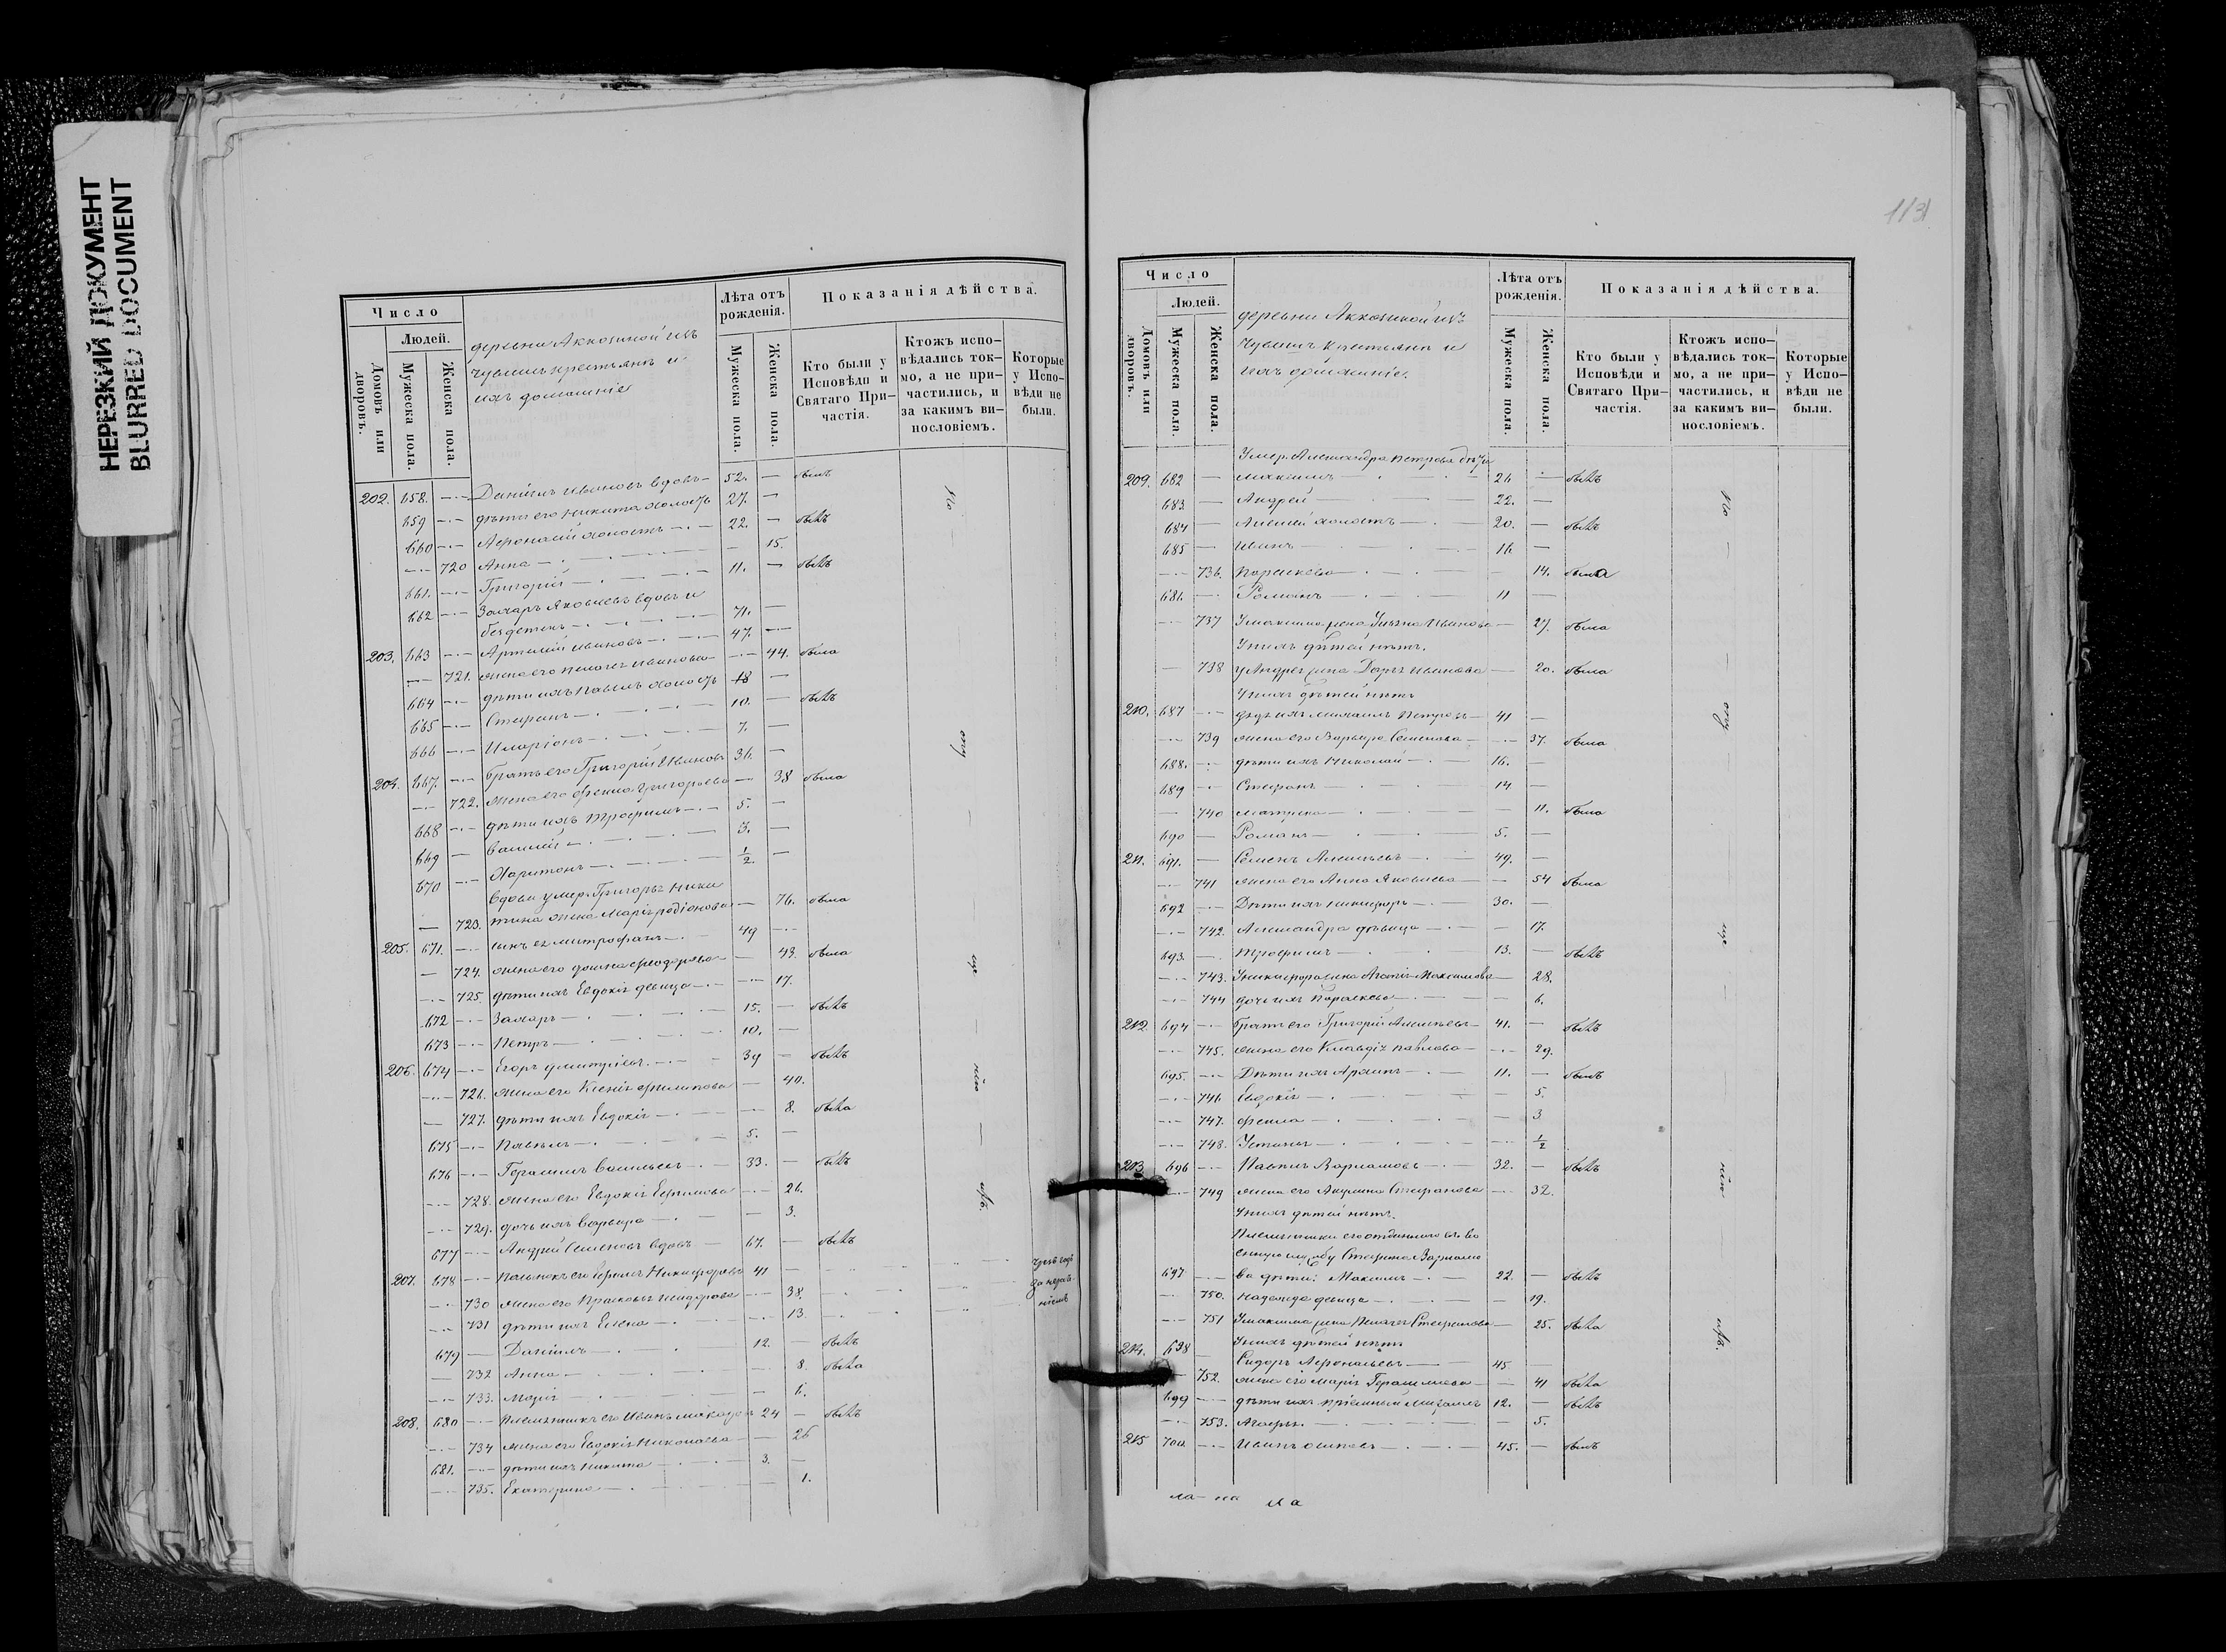 НЕРЕЗКИЙ ДОКУМЕНТ
BLURRED DOCUMENT
Число
Людей.
Домовъ или дворовъ.
Мужеска пола.
Женска пола.
деревни Аккозиной изъ
чувашъ крестьянъ и
ихъ домашніе
Лѣта отъ рожденія.
Мужеска пола.
Женска пола.
Показанія дѣйства.
Кто были у Исповѣди и Святаго Причастія.
Ктожъ исповѣдались токмо, а не причастились, и за какимъ винословіемъ.
Которые у Исповѣди не были.
202. 658. Даніилъ Ивановъ вдовъ 52. былъ
659 дѣти его Никита холостъ 27.
660 Афонасій холостъ 22. былъ
720 Анна 15.
661. Григорій 11. былъ
662 Захаръ Яковлевъ вдовъ и
бездѣтенъ 71.
203. 663 Артемій Ивановъ 47.
721. жена его Пелагея Иванова 44. была
664 дѣти ихъ Павелъ холостъ 18
665 Стефанъ 10. былъ
666 Иларіонъ 7.
204. 667. братъ его Григорій Ивановъ 36.
722. жена его Фекла Григорьева 38 была
668 дѣти ихъ Трофимъ 5.
669 Василій 3.
670 Харитонъ 1/2.
вдова умер. Григорья Ники
тина жена Марія родіонова
723. 76. была
205. 671. сынъ ея Митрофанъ 49
724. жена его Домна Феодорова 43. была
725. дѣти ихъ Евдокія девица 17.
672 Захаръ 15. былъ
673 Петръ 10.
206. 674 Егоръ Димитріевъ 39 былъ
726. жена его Ксенія Филипова 40.
727. дѣти ихъ Евдокія 8. была
675 Павелъ 5.
676 Герасимъ Васильевъ 33. былъ
728. жена его Евдокія Ефимова 26.
729. дочь ихъ Варвара 3.
677 Андрей Семеновъ вдовъ 67. былъ
207. 678 Никифоровъ 41
730 жена его Прасковья 38.
731 дѣти ихъ Елена 13.
679 Даніилъ 12. былъ
732 Анна 8. была
733. Марія 6.
208. 680 племянникъ его Иванъ Макаровъ 24 былъ
734 жена его Евдокія Николаева 26
681. дѣти ихъ Никита 3.
735. Екатерина 1.
113
Число
Людей.
Домовъ или дворовъ.
Мужеска пола.
Женска пола.
деревни Аккозиной изъ
чувашъ крестьянъ и
ихъ домашніе.
Лѣта отъ рожденія.
Мужеска пола.
Женска пола.
Показанія дѣйства.
Кто были у Исповѣди и Святаго Причастія.
Ктожъ исповѣдались токмо, а не причастились, и за какимъ винословіемъ.
Которые у Исповѣди не были.
Умер. Александра Петрова дѣти
209. 682 Максимъ 26 былъ
683 Андрей 22.
684 Алексей холостъ 20. былъ
685 Иванъ 16
736. Параскева 14. была
686. Романъ 11
737 У Максима жена Ульяна Иванова 27. была
У нихъ дѣтей нѣтъ.
738 У Андрея жена Дарья Иванова 20. была
У нихъ дѣтей нѣтъ
210. 687 дядя ихъ Михаилъ Петровъ 41
739 жена его Варвара Семенова 37. была
688. дѣти ихъ Николай 16.
689 Стефанъ 14
740 Матрена 11. была
690 Романъ 5.
211. 691. Семенъ Алексѣевъ 49.
741 жена его Анна Яковлева 54 была
692 Дѣти ихъ Никифоръ 30.
742. Александра дѣвица 17.
693. Трофимъ 13. былъ
743. У Никифора жена Агапія Максимова 28.
744 дочь ихъ Параскева 6.
212. 694 братъ его Григорій Алексѣевъ 41. былъ
745. жена его Клавдія Павлова 29.
695. Дѣти ихъ 11. былъ
746 Евдокія 5.
747. Фекла 3
748. Устинья 1/2
213 696 Павелъ Варламовъ 32. былъ
749 жена его Акулина Стефанова 32.
У нихъ дѣтей нѣтъ.
Племянники его отданнаго въ во
енную службу Стефана Варламо
697 ва дѣти: Максимъ 22. былъ
750. Надежда девица 19.
751 У Максима жена Пелагея Стефанова 25. была
У нихъ дѣтей нѣтъ
214. 698 Сидоръ Афонасьевъ 45
752. жена его Марія Герасимова 41 была
699 дѣти ихъ пріемный Михаилъ 12. былъ
753. Агафья 5.
215 700 Иванъ Осиповъ 45. былъ